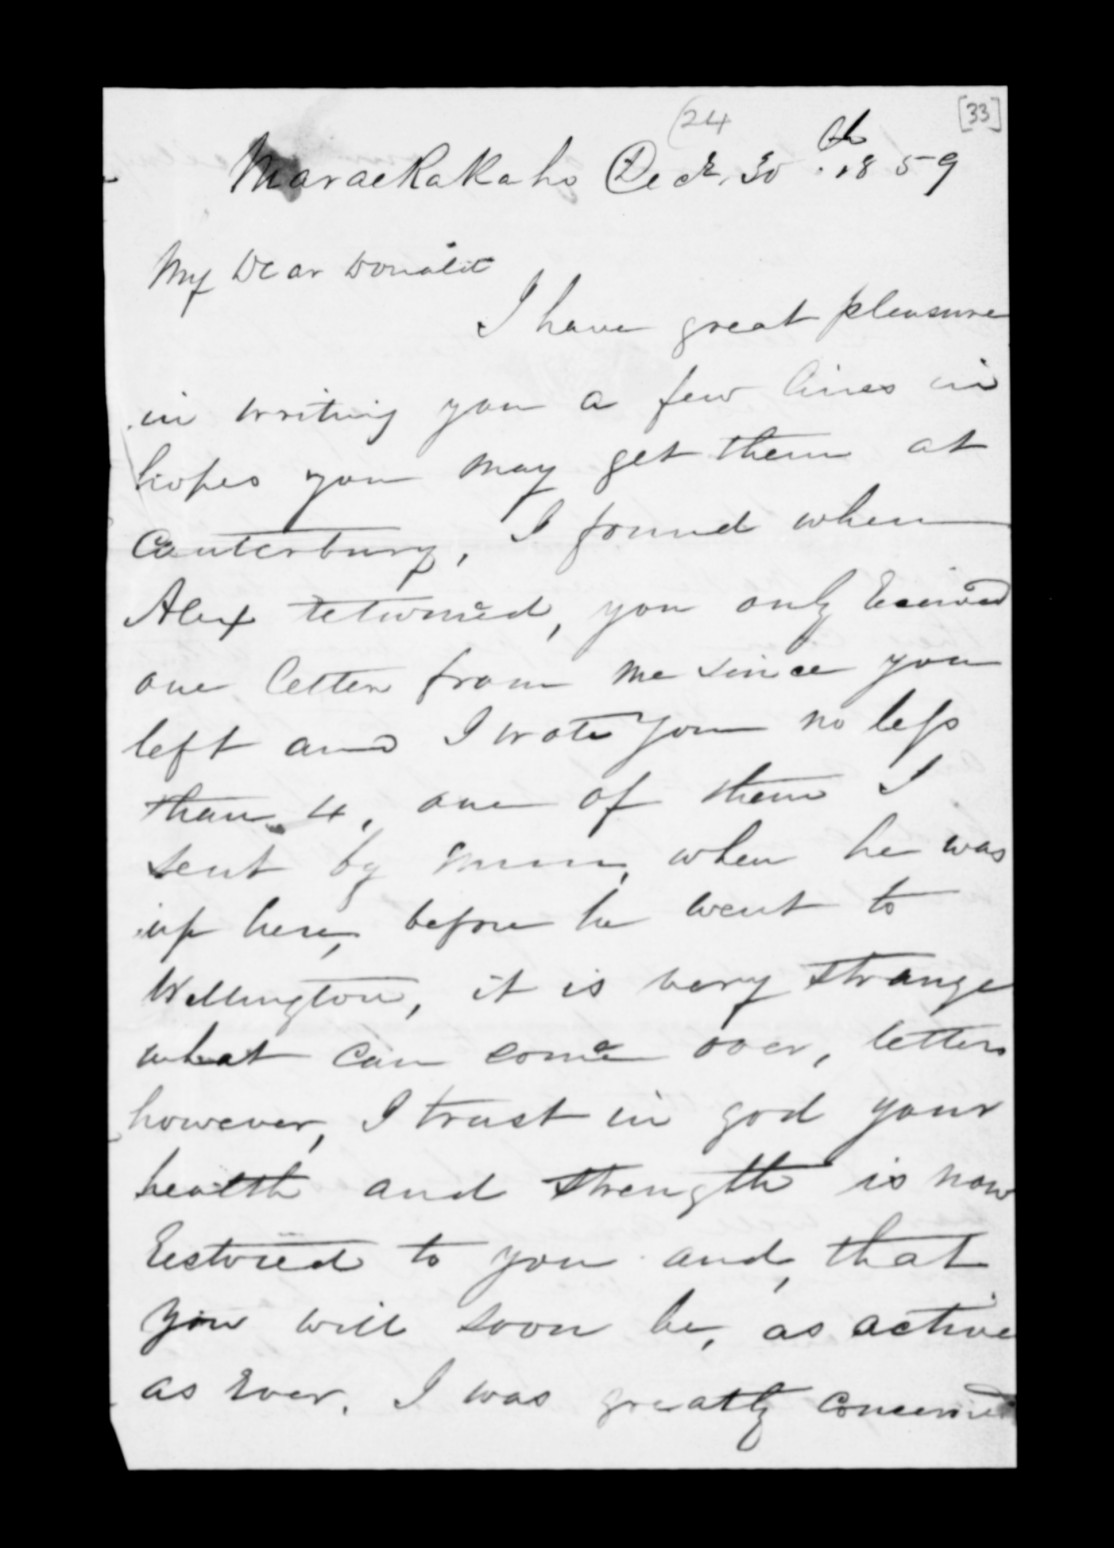 [33]
(24
Maraekakaho Decr. 30th. 1859
My Dear Donald
I have great pleasure
in writing you a few lines in
hopes you may get them at
Canterbury, I found when
Alex returned, you only Received
one letter from me since you
left and I wrote you no less
than 4, one of them I
sent by when he was
up here, before he went to
Wellington, it is very strange
what can come over, letters
however, I trust in god your
health and strength is now
Restored to you and, that
you will soon be, as active
as Ever. I was greatly concerned